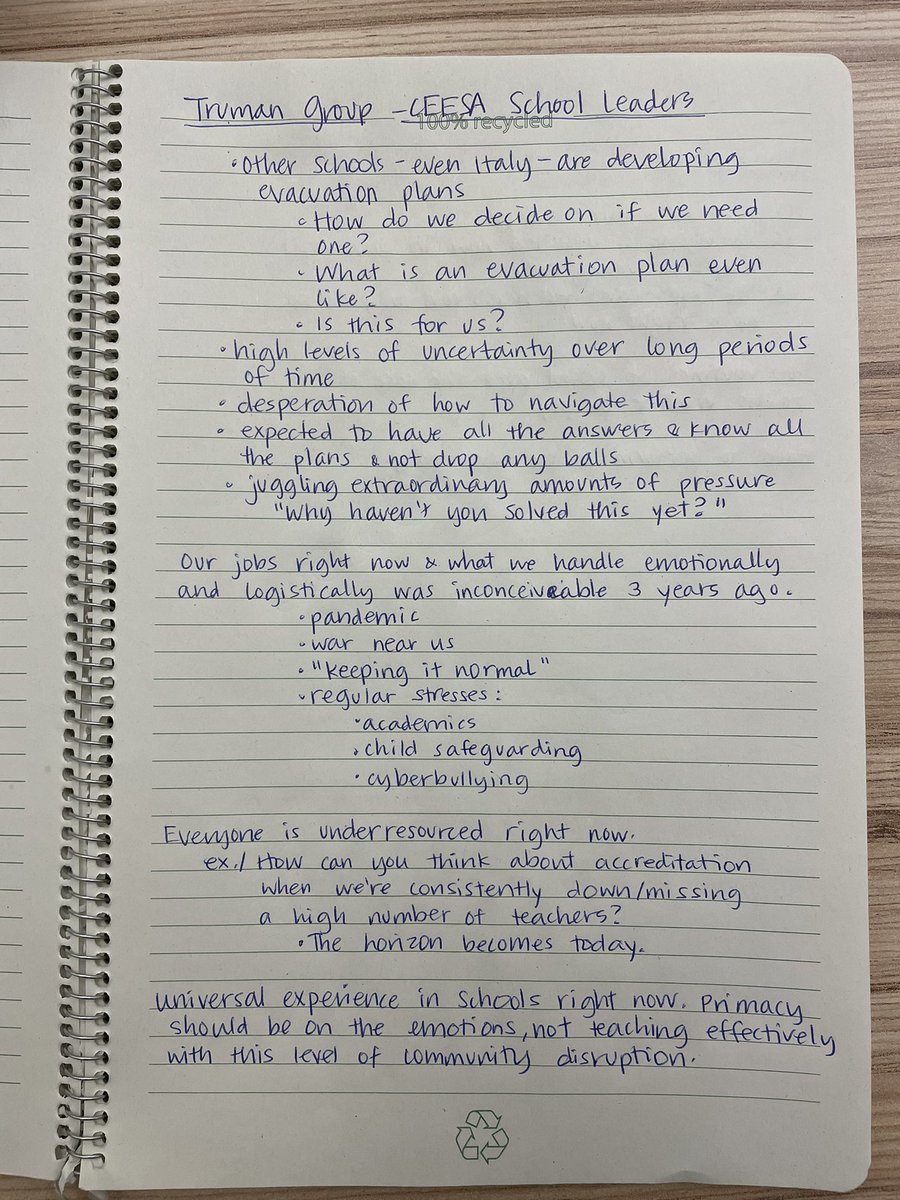 Truman Group - CEESA School Leaders
100% recycled
• Other schools - even Italy - are developing
evacuation plans
• How do we decide on if we need
one?
• What is an evacuation plan even
like?
• Is this for us?
• high levels of uncertainty over long periods
of time
• desperation of how to navigate this
• expected to have all the answers & know all
the plans & not drop any balls
• juggling extraordinary amounts of pressure
"Why haven't you solved this yet?"
Our jobs right now & what we handle emotionally
and logistically was inconceivable 3 years ago.
• pandemic
• war near us
• "keeping it normal"
• regular stresses:
• academics
• child safeguarding
• cyberbullying
Everyone is underresourced right now.
ex./ How can you think about accreditation
when we're consistently down/missing
a high number of teachers?
• The horizon becomes today.
Universal experience in schools right now. Primacy
should be on the emotions, not teaching effectively
with this level of community disruption.